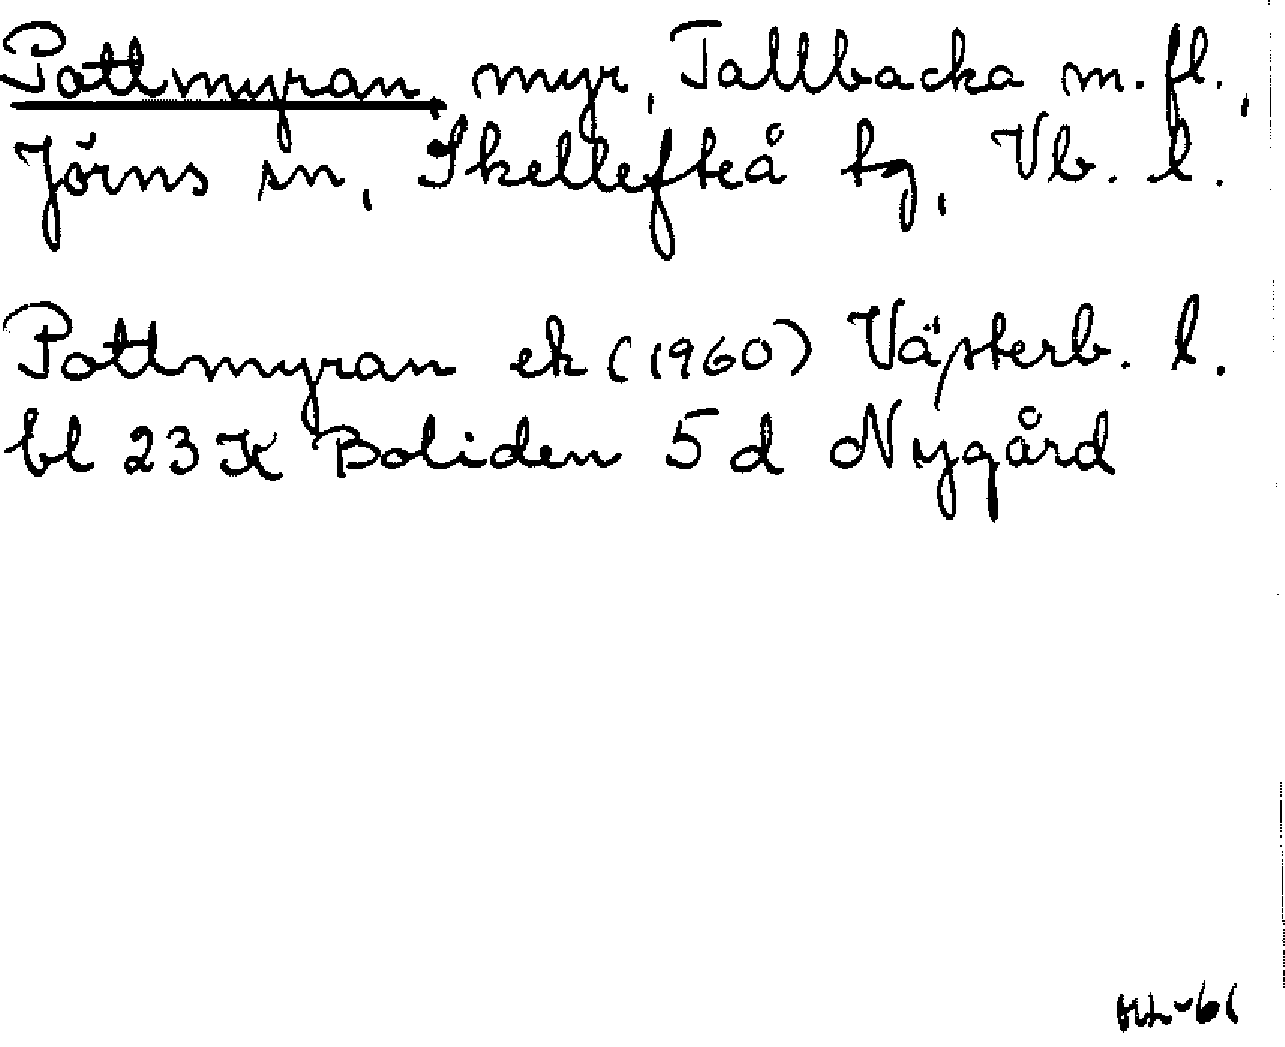 Pottmyran, myr, Tallbacka m.fl.,
Jörns sn, Skellefteå tg, Vb. l.
Pottmyran ek (1960) Västerb. l.
bl 23 K Boliden 5 d Nygård